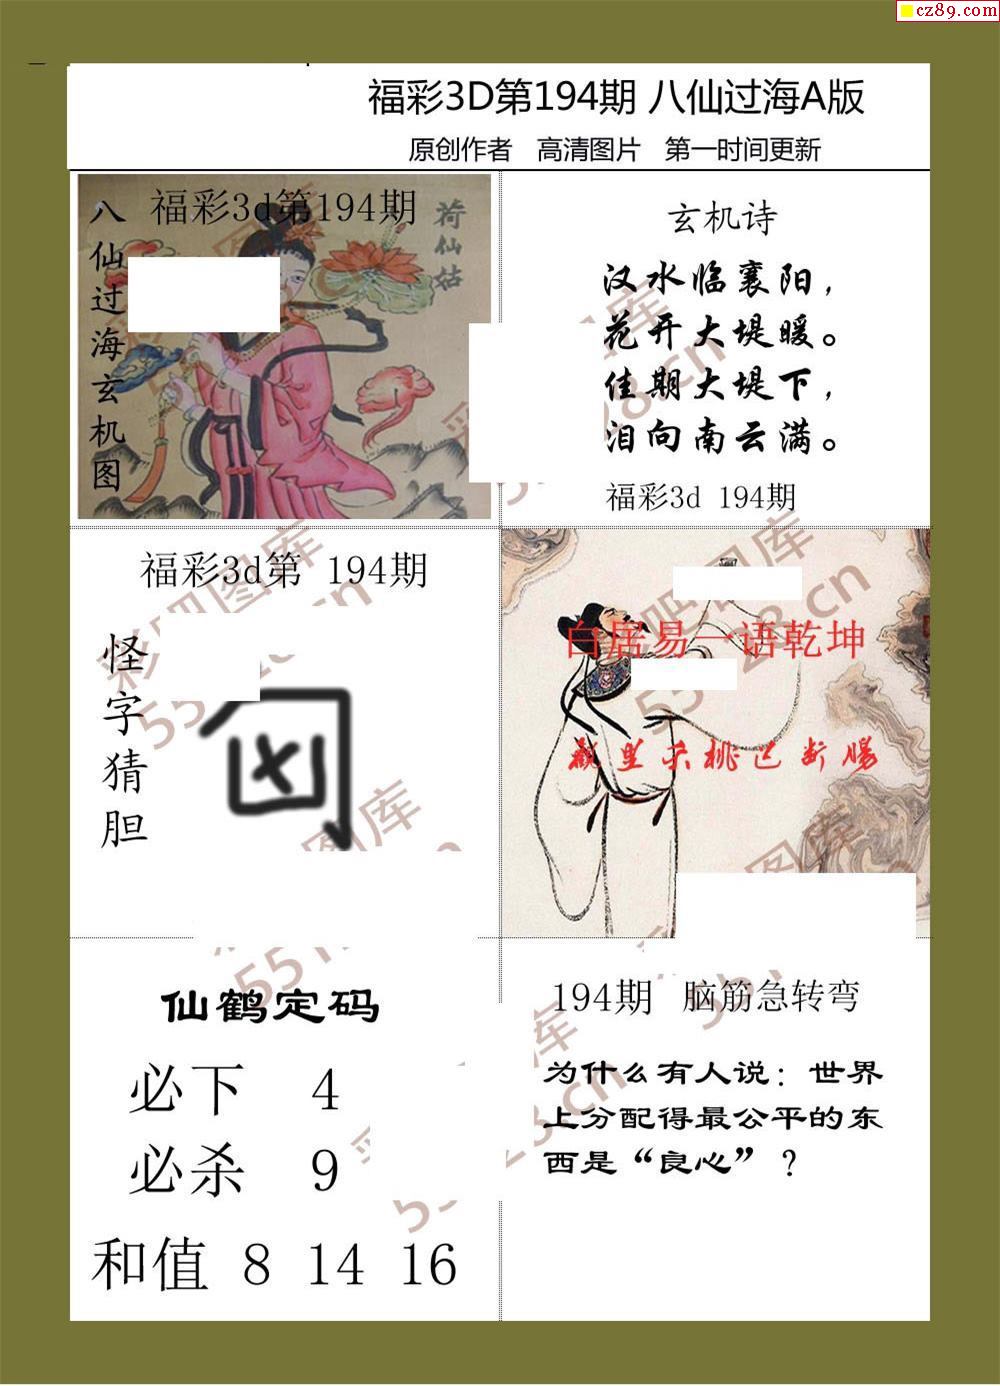 cz89.com
福彩3D第194期 八仙过海A版
原创作者 高清图片 第一时间更新
福彩3d第194期
八仙过海玄机图
荷仙姑
玄机诗
汉水临襄阳，
花开大堤暖。
佳期大堤下，
泪向南云满。
福彩3d 194期
福彩3d第 194期
怪字猜胆
白居易一语乾坤
仙鹤定码
必下 4
必杀 9
和值 8 14 16
194期 脑筋急转弯
为什么有人说：世界
上分配得最公平的东
西是“良心”？